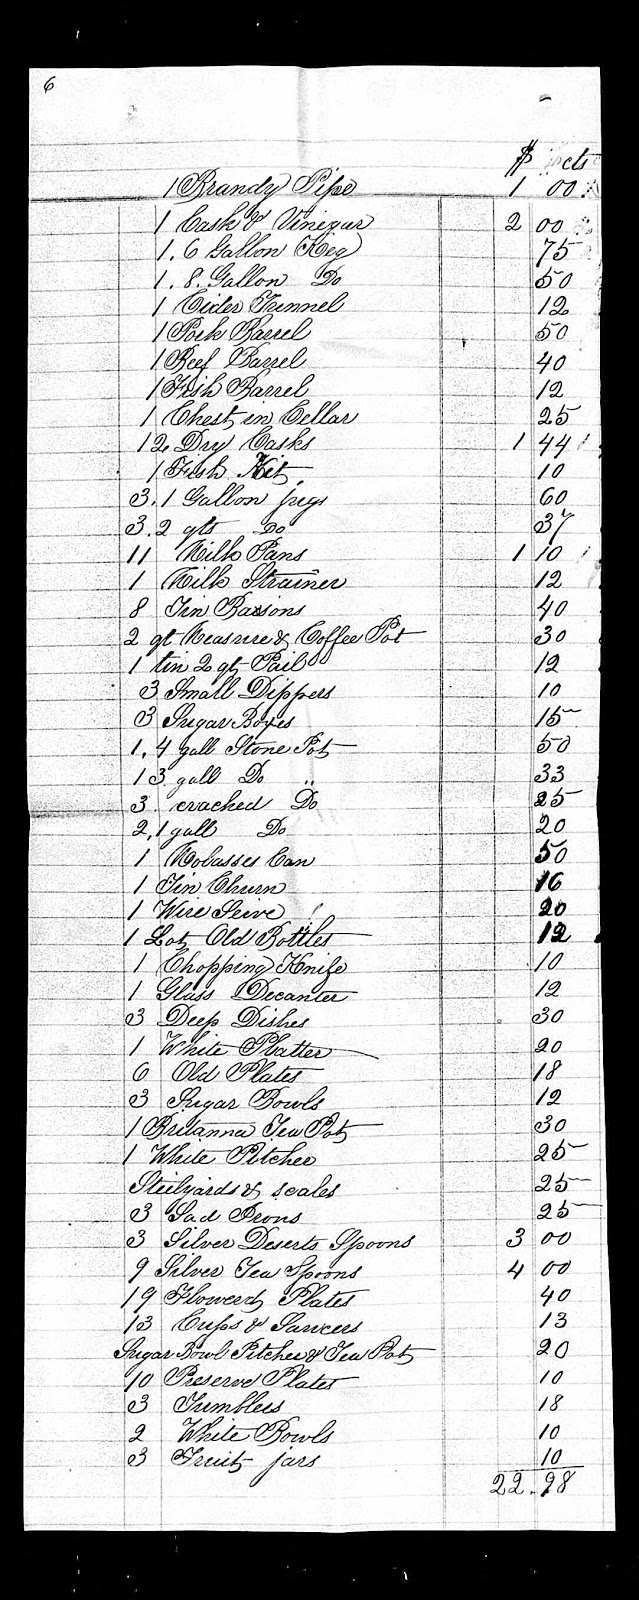 6
$ cts
1 Brandy Pipe 1 00
1 Cask & Vinegar 2 00
1. 6 Gallon Keg 75
1. 8. Gallon Do 50
1 Cider Tunnel 12
1 Pork Barrel 50
1 Beef Barrel 40
1 Fish Barrel 12
1 Chest in Cellar 25
12 Dry Casks 1 44
1 Fish Kit 10
3. 1 Gallon jugs 60
3. 2 qts Do 37
11 Milk Pans 1 10
1 Milk Strainer 12
8 Tin Basons 40
2 qt Measure & Coffee Pot 30
1 tin 2 qt Pail 12
3 Small Dippers 10
3 Sugar Boxes 15
1. 4 gall Stone Pot 50
1 3 gall Do " 33
3 cracked Do 25
2. 1 gall Do 20
1 Molasses Can 50
1 Tin Churn 16
1 Wire Seive 20
1 Lot Old Bottles 12
1 Chopping Knife 10
1 Glass Decanter 12
3 Deep Dishes 30
1 White Platter 20
6 Old Plates 18
3 Sugar Bowls 12
1 Britanna Tea Pot 30
1 White Pitcher 25
Steilyards & scales 25
3 Sad Irons 25
3 Silver Deserts Spoons 3 00
9 Silver Tea Spoons 4 00
19 Flowerd Plates 40
13 Cups & Saucers 13
Sugar Bowl Pitcher & Tea Pot 20
10 Preserve Plates 10
3 Tumblers 18
2 White Bowls 10
3 Fruit jars 10
22.98